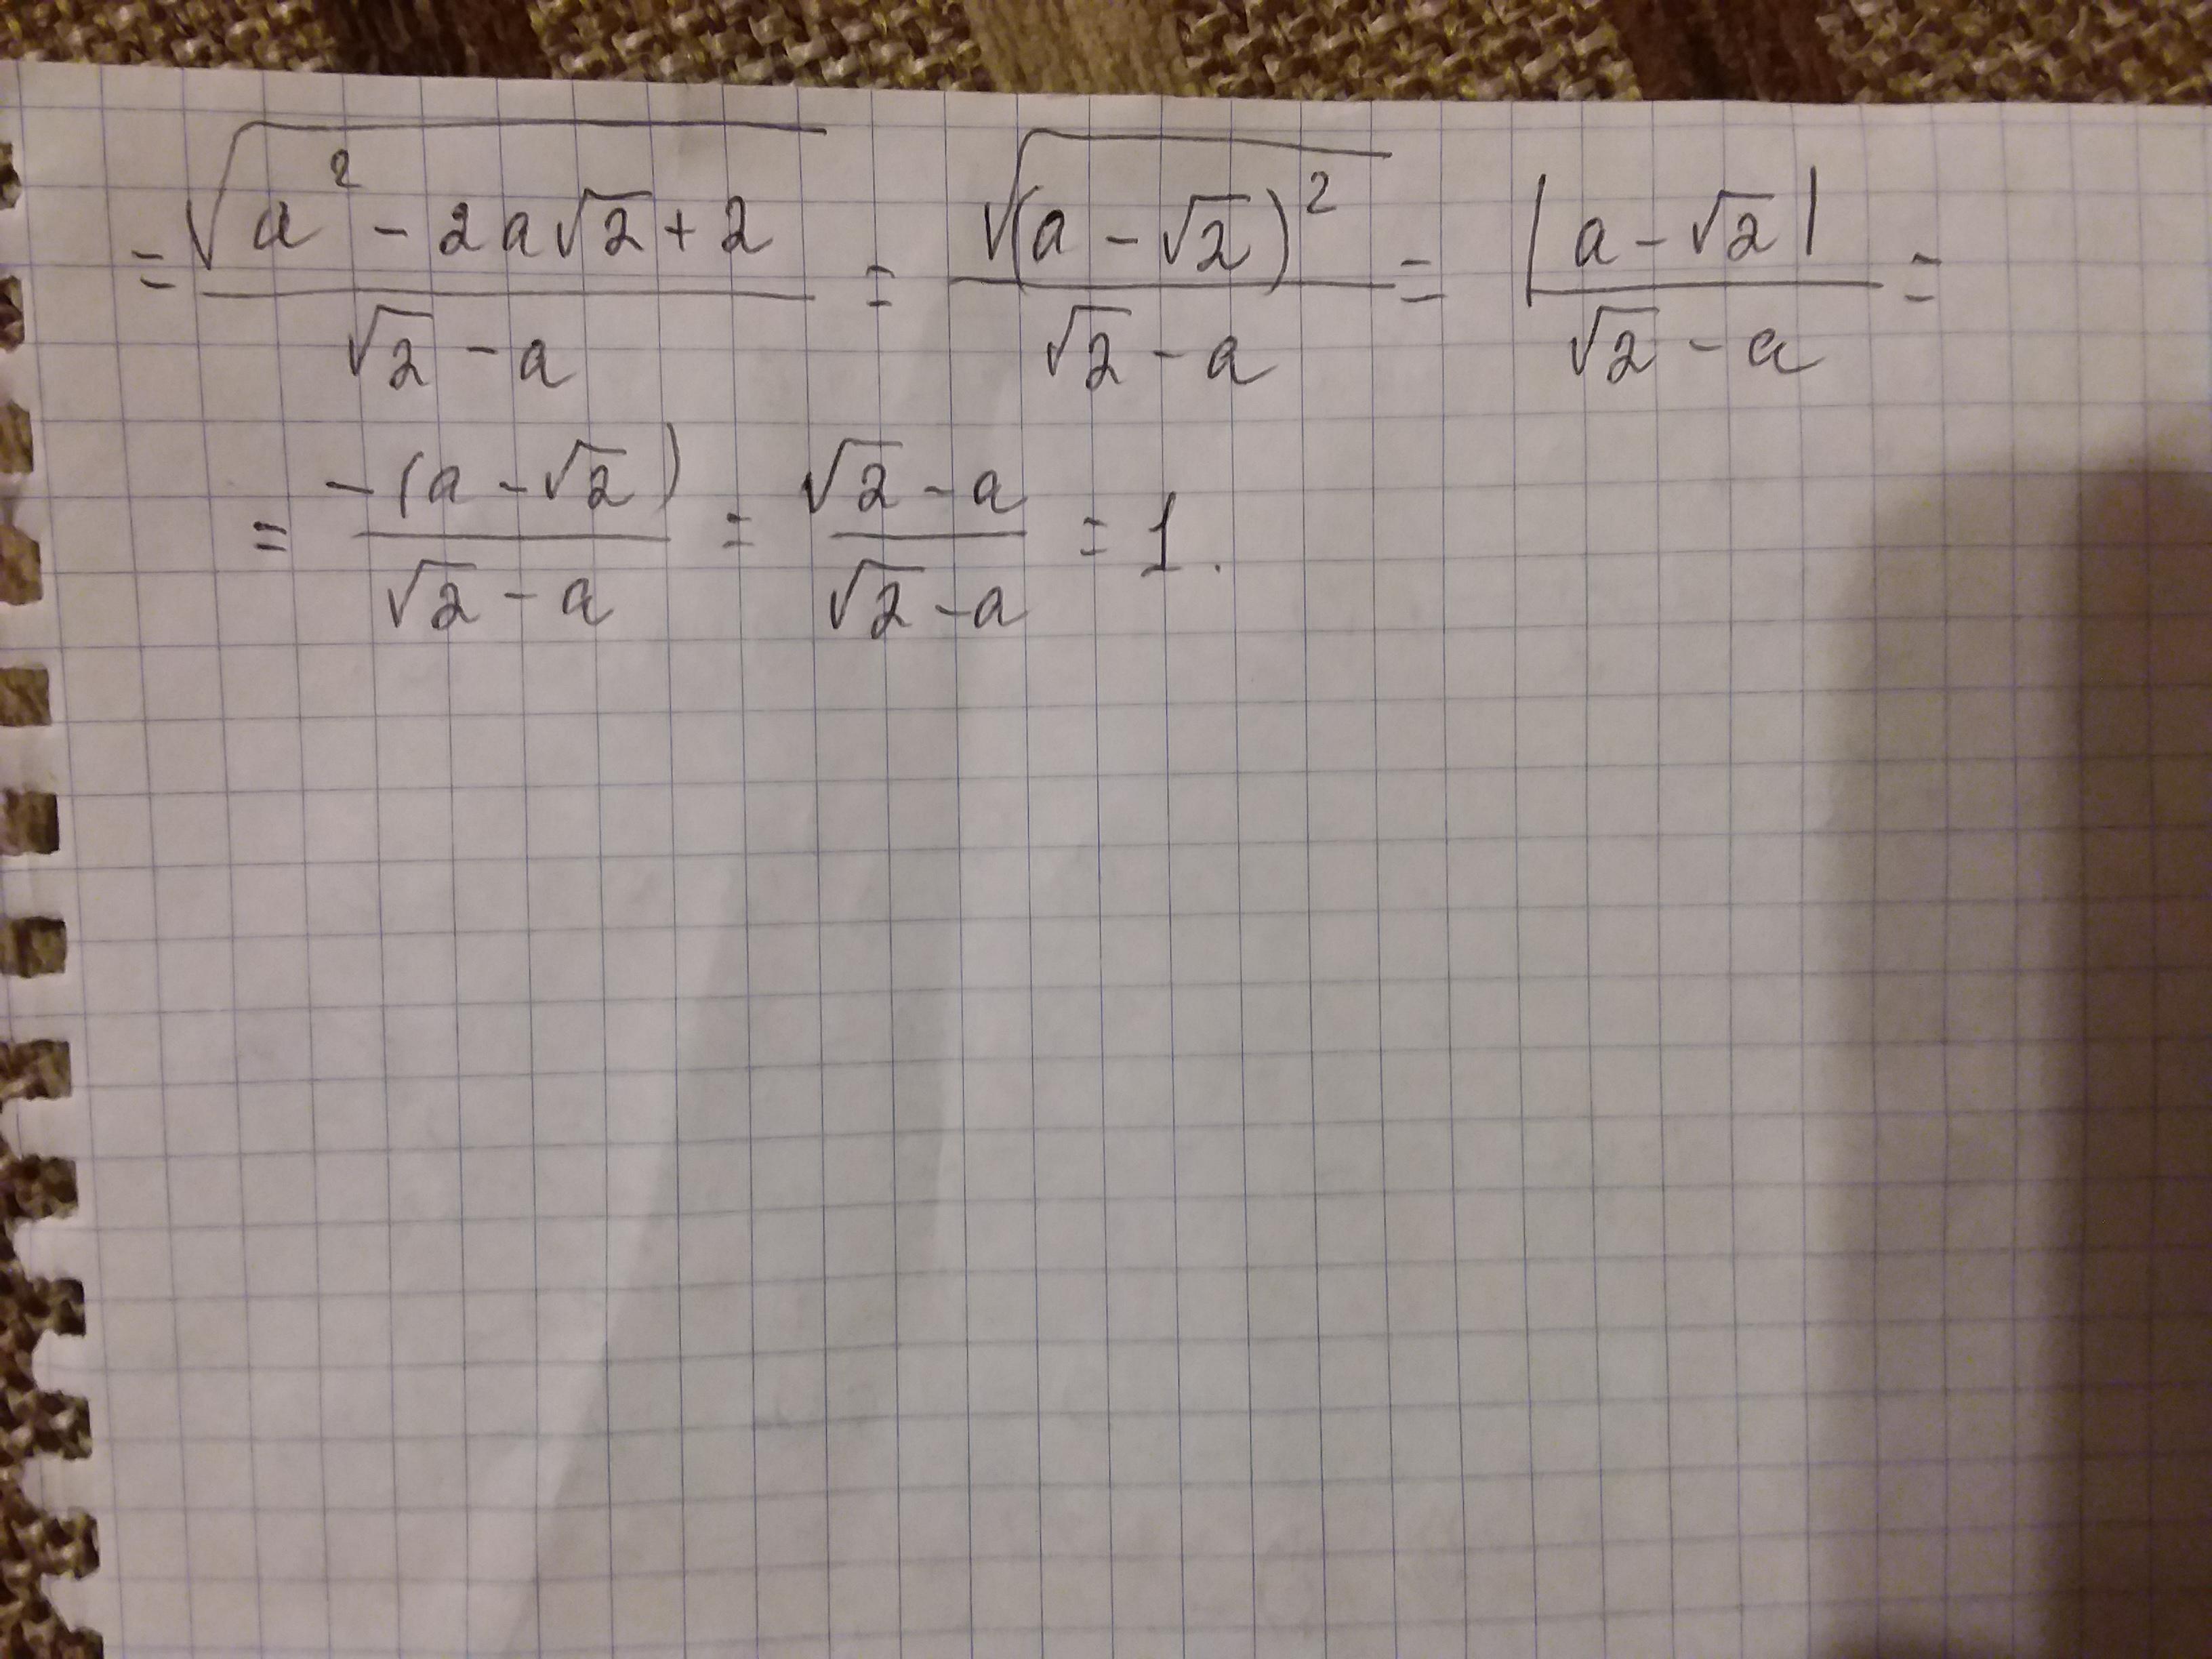 = √(a² - 2a√2 + 2) / (√2 - a) = √((a - √2)²) / (√2 - a) = |a - √2| / (√2 - a) =
= -(a - √2) / (√2 - a) = (√2 - a) / (√2 - a) = 1.